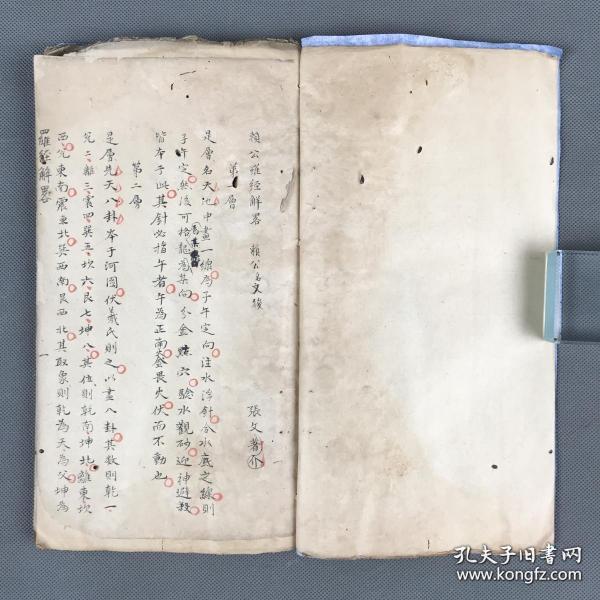 賴公羅經解畧　賴公名文駿
張文著介
第一層
是層名天池中畫一線為子午定向注水浮針合水底之線則
子午定然後可格龍 向分金 穴驗水觀砂迎神避殺
皆本于此其針必指午者午為正南 畏火伏而不動也
第二層
是層先天八卦本于河圖伏羲氏則之以畫八卦其数則乾一
兌二離三震四巽五坎六艮七坤八其位則乾南坤北離東坎
西兌東南震東北巽西南艮西北其取象則乾為天為父坤為
羅經解畧
一
孔夫子旧书网
www.kongfz.com